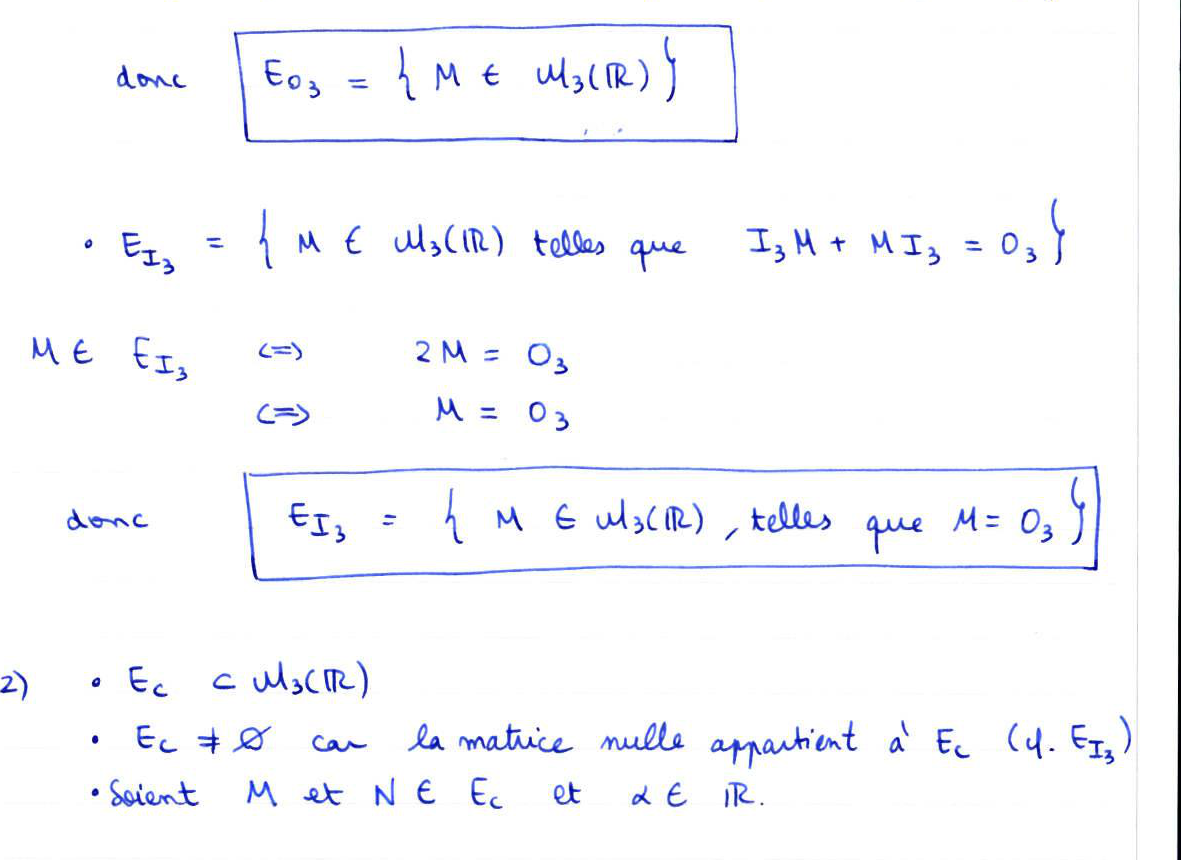 donc E_{O_3} = { M ∈ M_3(ℝ) }
• E_{I_3} = { M ∈ M_3(ℝ) telles que I_3 M + M I_3 = O_3 }
M ∈ E_{I_3} <=> 2M = O_3
<=> M = O_3
donc E_{I_3} = { M ∈ M_3(ℝ), telles que M = O_3 }
2) • E_c ⊂ M_3(ℝ)
• E_c ≠ ∅ car la matrice nulle appartient à E_c (cf. E_{I_3})
• Soient M et N ∈ E_c et α ∈ ℝ.